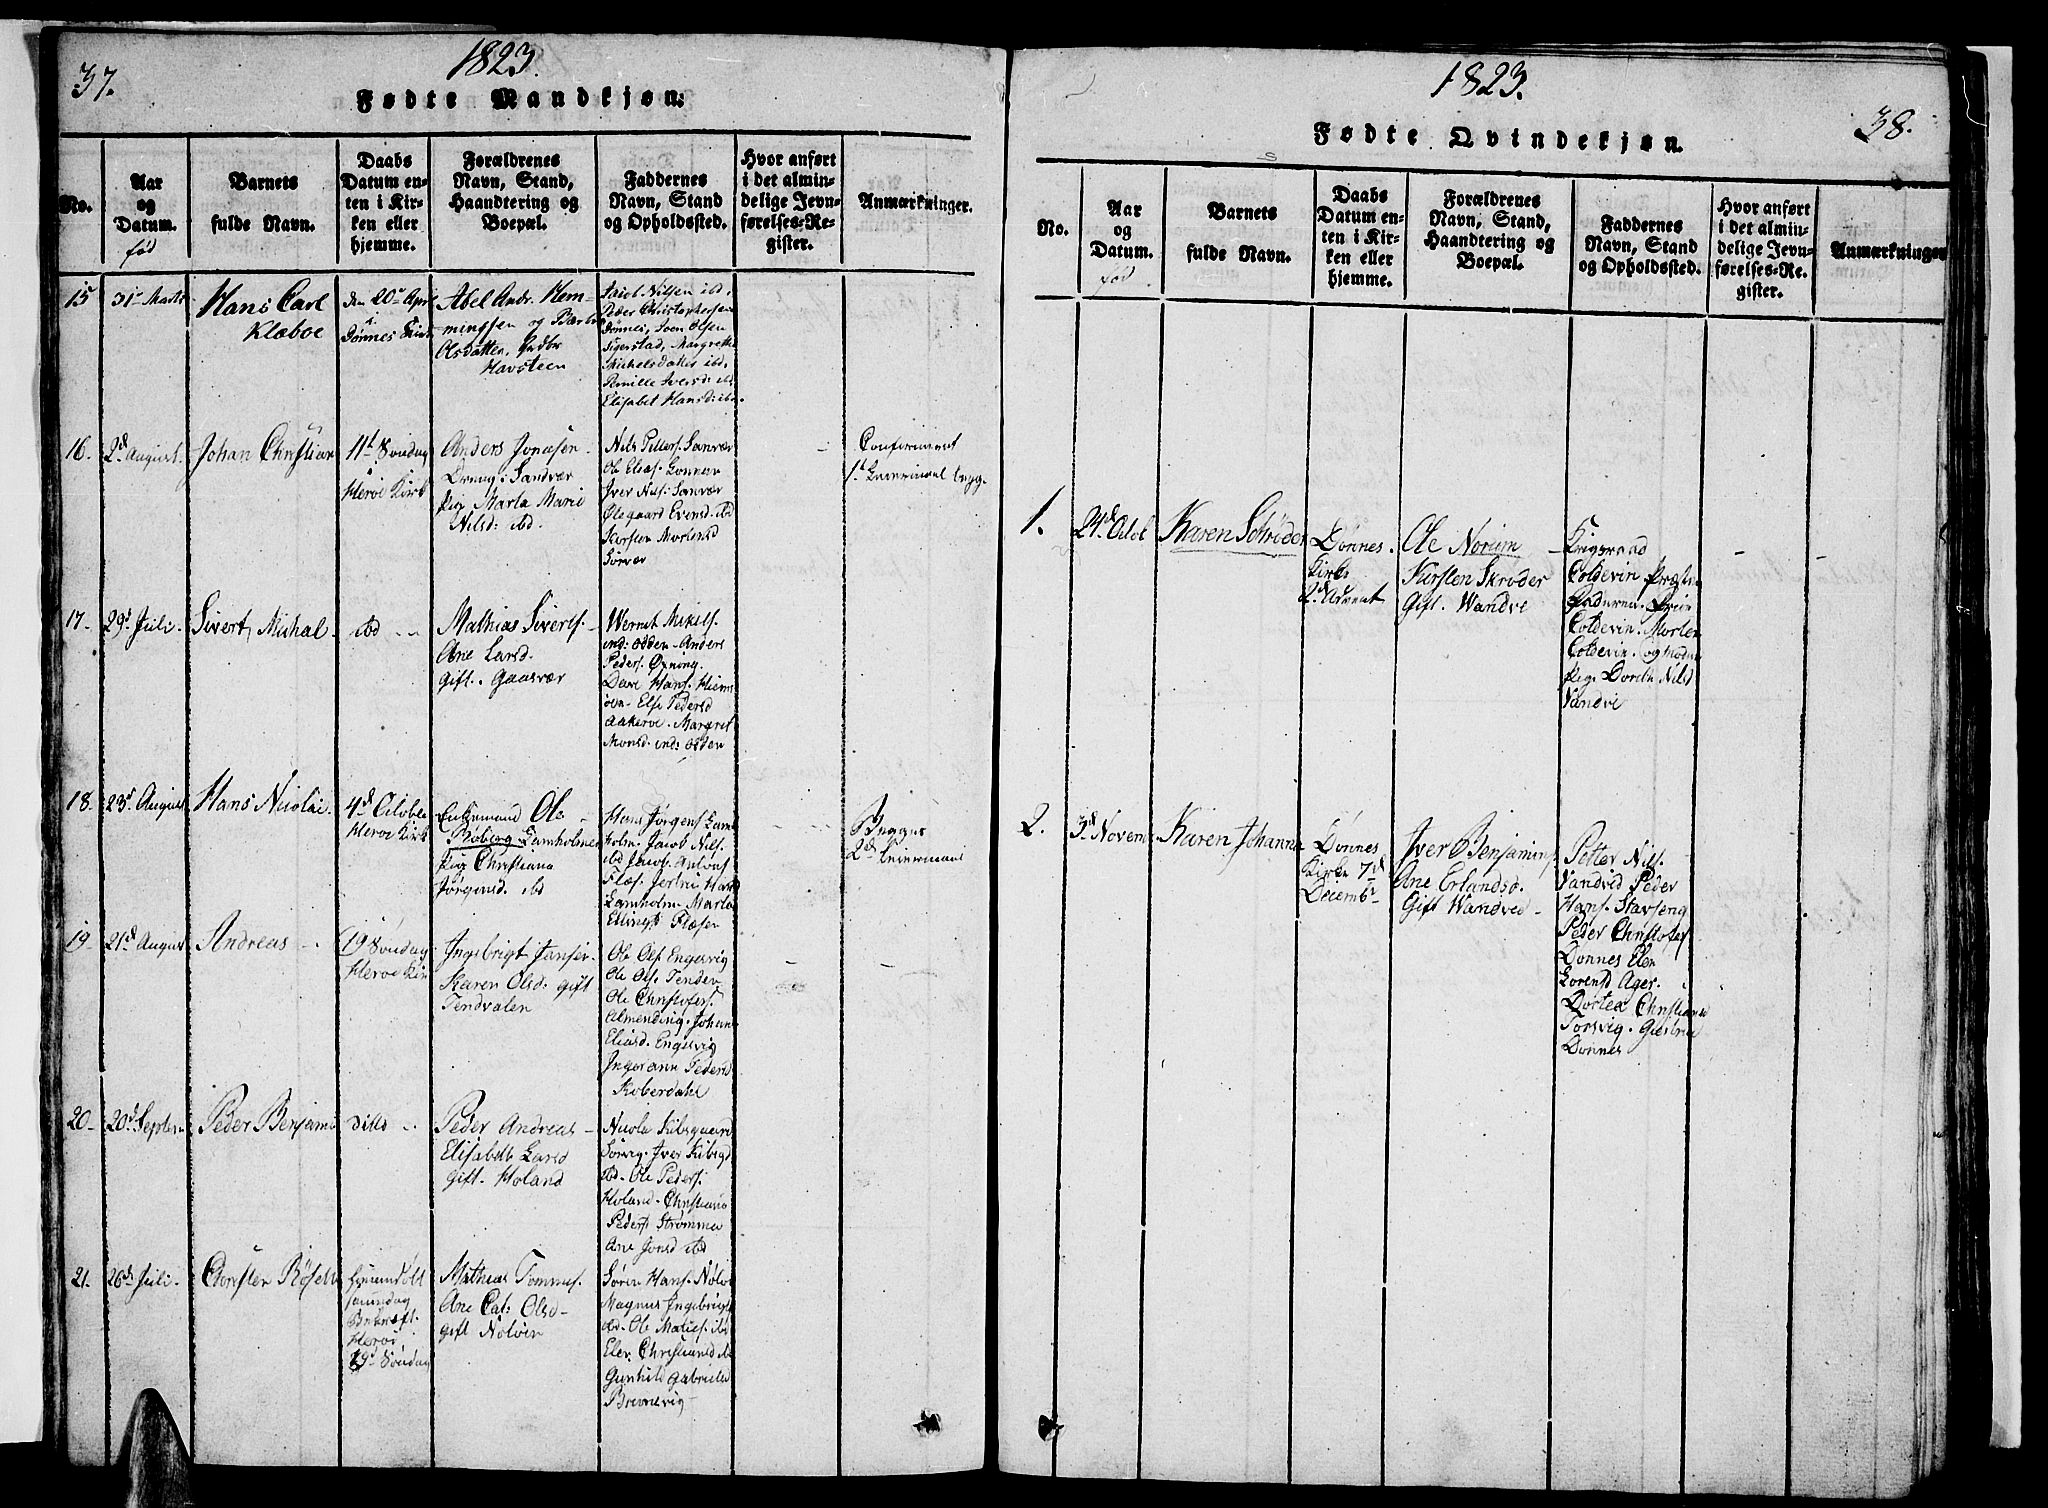 37.
1823.
Fødte Mandkjøn.
No.
Aar
og
Datum.
fød
Barnets
fulde Navn.
Daabs
Datum en-
ten i Kir-
ken eller
hjemme.
Forældrenes
Navn, Stand,
Haandtering og
Boepæl.
Faddernes
Navn, Stand
og Opholdssted.
Hvor anført
i det almin-
delige Jevn-
førelses-Re-
gister.
Anmærkninger.
15
31te Marts
Hans Carl
Klæboe
den 20de April
i
Dønnes Kirke
Abel Andr. Hem-
mingsen og
Olsdatter,
Havsteen
Nilsen ibd.
Peder Christophersen
Dønnes, Soen Olsen
Tigerstad, Margrethe
Michelsdatter ibd.
Pernille Iversd: ibd
Elisabet Hansd: ibd.
16.
2d August.
Johan Christian
11t Søndag
i
Herøe Kirk
Anders Jonesen
Dreng i Sandvær
Pig Marta Marie
Nilsd: ibd.
Nils Pettersf. Sanvær
Ole Eliasf.
Iver Nilsf: Sanvær
Olegaard Evensd. ibd
Torsten Mortensd
Sorvær
Confirmeret
1t Leiermaal begge
17-
29d Juli-
Sivert Michal-
ibd - -
Mathias Sivertsf.
Ane Larsd.
Gift. Gaasvær
Wernet Mikelsf.
ind: odden - Anders
Pedersf. Øxning.
Hansf. Hiem
øen - Else Pedersd
Aakerøe. Margret
Monsd. ind: odden
18.
23d August
Hans Nicolai
4d Octobr
Herøe Kirk
Enkemand Ole
Boberg Lamholmen
Pig Christiana
Jørgensd. ibd
Hans Jørgensf. Lam
holm. Jacob Nilsf.
ibd Jacob Antonsf
Flæs. Hansd
Lamholm. Marta
Ellingsd Flæsen
Begges
2det Leiermaal
19-
21d August
Andreas -
19 Søndag
Herøe Kirk
Ingebrigt Jansen.
Karen Olsd. gift
Tendvalen
Ole Olsf. Engesvig
Ole Olsf. Tenden
Ole Christofersf.
Almending. Johana
Eliasd. Engesvig
Ingerann Pedersd
Koberdahl
20-
20d Septem
Peder Benjami
ditto -
Peder Andreas -
Elisabeth Larsd
gift. Holand
Nicola
Sørvig. Iver
ibd. Ole Pedersf.
Holand. Christiana
Pedersd Strømmen
Ane Jonsd ibd
21.
26d Juli-
Torsten
Hiemdøbt
Bekræft.
Herøe
19d Søndag
Mathias Tommesf.
Ane Cat: Olsd-
gift Noløen
Søren Hansf. Nolø
Magnus Ingebrigtsf
ibd. Ole Matisf. ibd
Elen Christiansd ibd
Gunhild Gabrielsd
Breivig-
1823.
38.
Fødte Qvindekjøn.
No.
Aar
og
Datum.
fød
Barnets
fulde Navn.
Daabs
Datum en-
ten i Kir-
ken eller
hjemme.
Forældrenes
Navn, Stand,
Haandtering og
Boepæl.
Faddernes
Navn, Stand
og Opholdssted.
Hvor anført
i det almin-
delige Jevn-
førelses-Re-
gister.
Anmærkninger
1.
24d Octob
Karen Schrøder
Dønnes.
Kirke
2d Advent
Ole Norum -
Karsten Skrøder
Gift. Wandve
Krigsraad
Coldevin Præsten
Coldevin. Morten
Coldevin. og Madm
Pige Doreta Nilsd
Vandve
2.
3d Novem
Karen Johanna
Dønnes
Kirke 7d
Decembr
Iver Benjaminsf.
Ane Erlandsd.
Gift Wandved -
Petter Nilsf.
Vandved Peder
Hansf. Stavseng
Peder Christofersf
Dønnes Elen
Lorensd Ager.
Dortea Christiana
Torsvig.
Dønnes